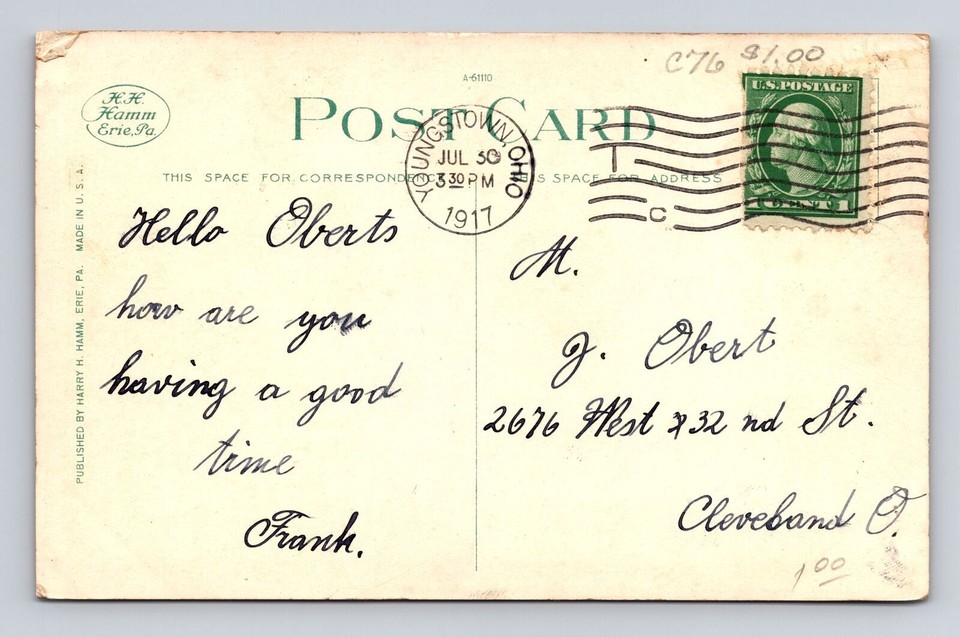 C76 $1.00
A-61110
H.H.
Hamm
Erie, Pa.
POST CARD
U.S. POSTAGE
1 CENT 1
YOUNGSTOWN, OHIO
JUL 30
3 30 PM
1917
I
C
THIS SPACE FOR CORRESPONDENCE
THIS SPACE FOR ADDRESS
PUBLISHED BY HARRY H. HAMM, ERIE, PA. MADE IN U. S. A.
Hello Oberts
how are you
having a good
time
Frank.
M.
J. Obert
2676 West 32 nd St.
Cleveband O.
1 00